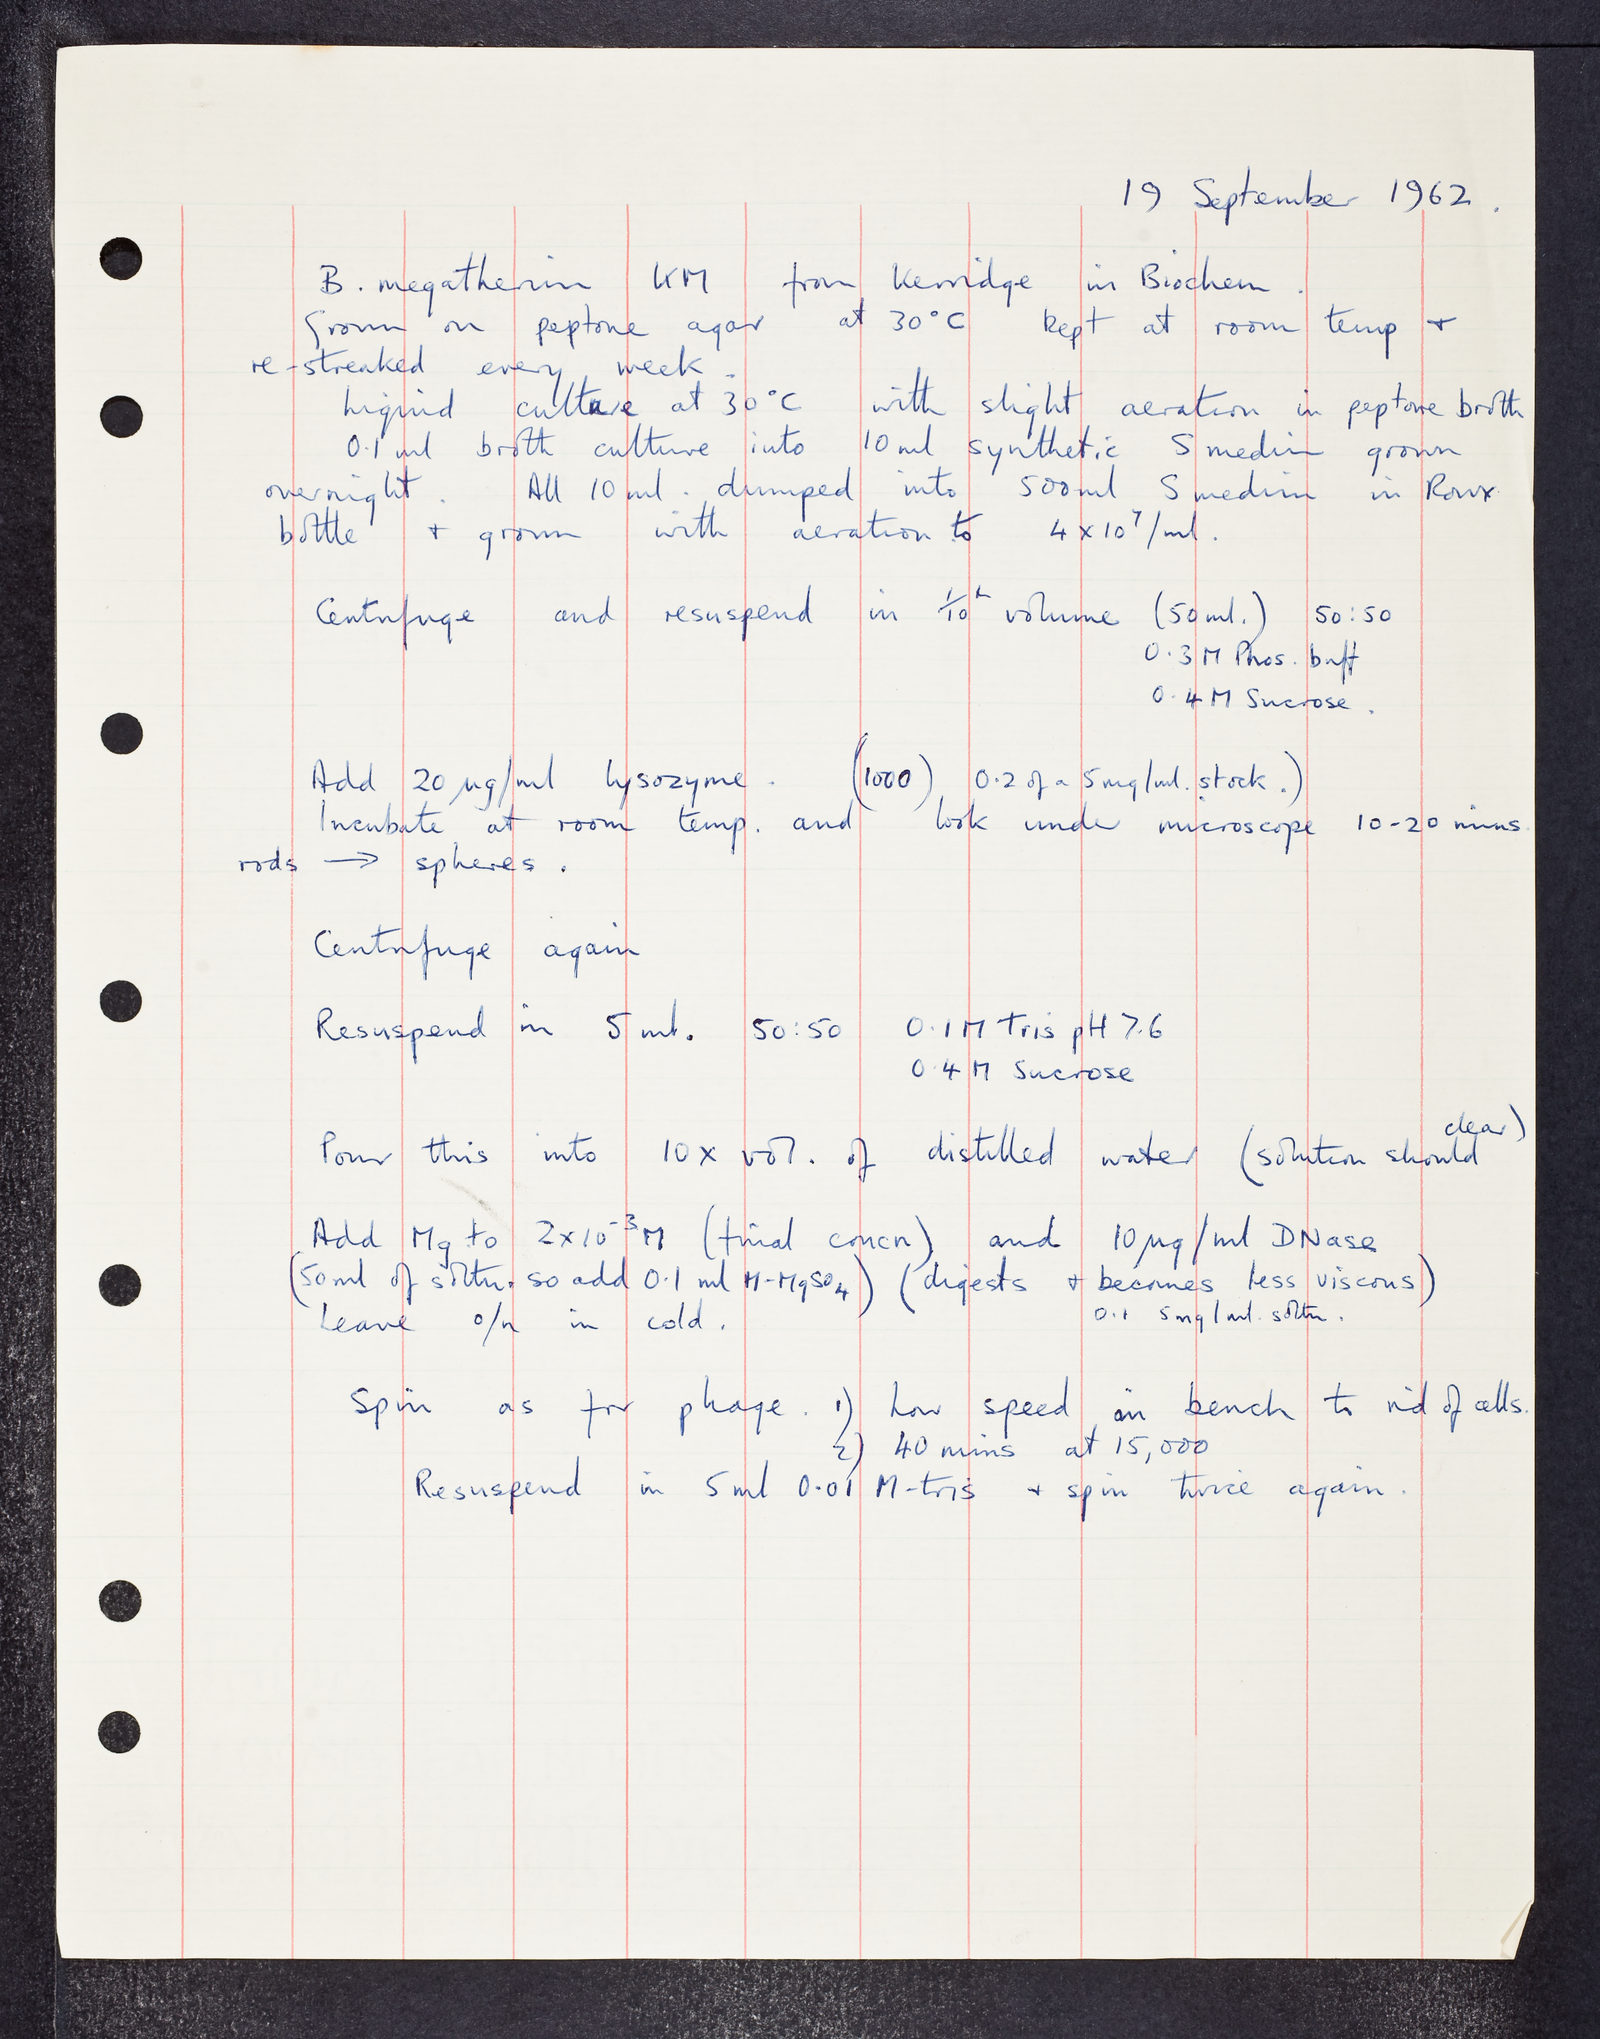 19 September 1962.
B. megatherium KM from Kerridge in Biochem.
Grown on peptone agar at 30°C kept at room temp +
re-streaked every week.
Liquid culture at 30°C with slight aeration in peptone broth
0.1 ml broth culture into 10 ml synthetic S medium grown
overnight. All 10 ml. dumped into 500 ml S medium in Roux
bottle + grown with aeration to 4 x 10⁷/ml.
Centrifuge and resuspend in 1/10ᵗʰ volume (50 ml.) 50:50
0.3 M Phos. buff
0.4 M Sucrose.
Add 20 µg/ml lysozyme. (1000) 0.2 of a 5 mg/ml. stock.)
Incubate at room temp. and look under microscope 10-20 mins.
rods → spheres.
Centrifuge again
Resuspend in 5 ml. 50:50 0.1 M Tris pH 7.6
0.4 M Sucrose
clear)
Pour this into 10 x vol. of distilled water (solution should
Add Mg to 2x10⁻³M (final concn) and 10 µg/ml DNase
(50 ml of soltn. so add 0.1 ml M-MgSO₄) (digests + becomes less viscous)
Leave o/n in cold. 0.1 5mg/ml. soltn.
Spin as for phage. 1) Low speed in bench to rid of cells.
2) 40 mins at 15,000
Resuspend in 5 ml 0.01 M-tris + spin twice again.